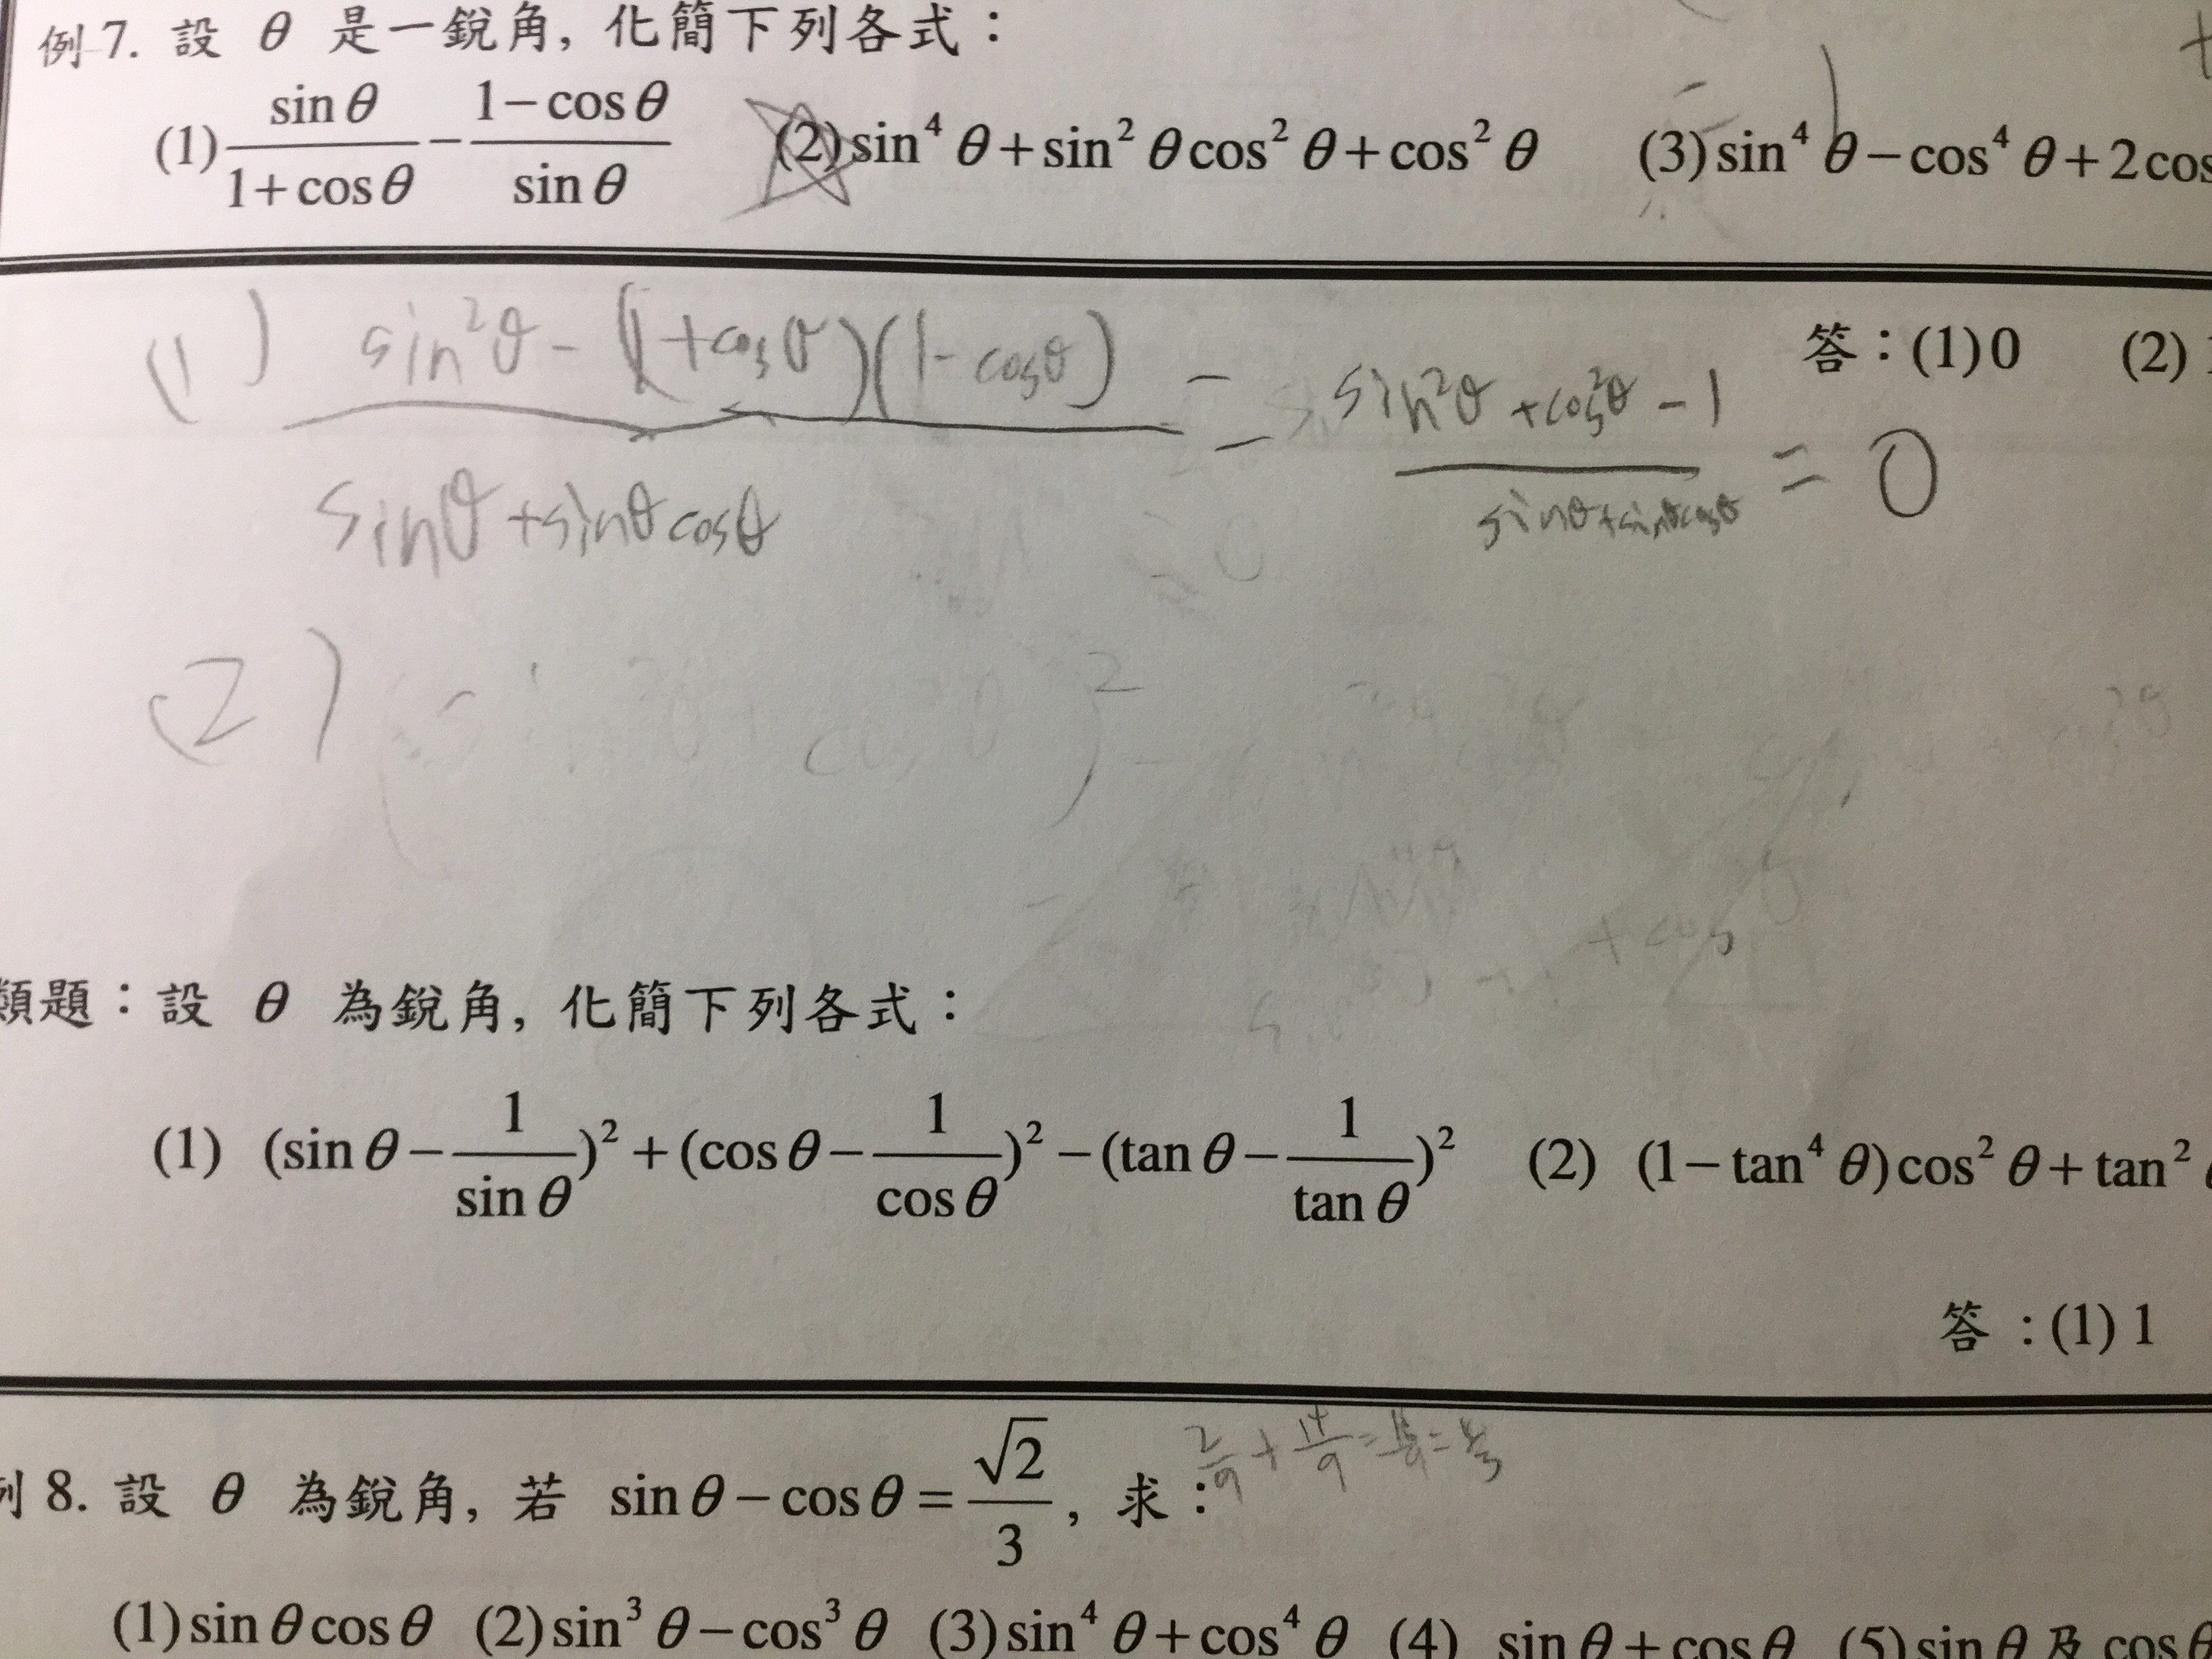 例7. 設 θ 是一銳角, 化簡下列各式：
(1) sinθ/(1+cosθ) − (1−cosθ)/sinθ (2)sin⁴θ+sin²θcos²θ+cos²θ (3)sin⁴θ−cos⁴θ+2cos
答：(1)0 (2)
(1) (sin²θ−(1+cosθ)(1−cosθ))/(sinθ+sinθcosθ) = (sin²θ+cos²θ−1)/(sinθ+sinθcosθ) = 0
(2)
類題：設 θ 為銳角, 化簡下列各式：
(1) (sinθ−1/sinθ)²+(cosθ−1/cosθ)²−(tanθ−1/tanθ)² (2) (1−tan⁴θ)cos²θ+tan²
答：(1) 1
例 8. 設 θ 為銳角, 若 sinθ−cosθ=√2/3, 求：
(1)sinθcosθ (2)sin³θ−cos³θ (3)sin⁴θ+cos⁴θ (4) sinθ+cosθ (5)sinθ及cosθ